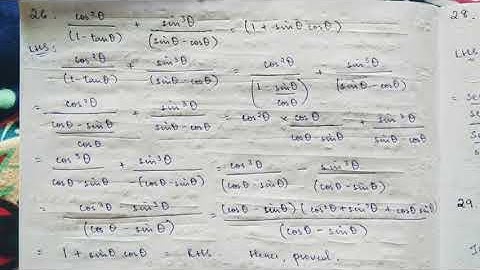 26. cos²θ/(1-tanθ) + sin³θ/(sinθ-cosθ) = (1+ sinθ cosθ)
28.
LHS: cos²θ/(1-tanθ) + sin³θ/(sinθ-cosθ) = cos²θ/(1-sinθ/cosθ) + sin³θ/(sinθ-cosθ)
= cos²θ/((cosθ-sinθ)/cosθ) + sin³θ/(sinθ-cosθ) = cos²θ × cosθ/(cosθ-sinθ) + sin³θ/(sinθ-cosθ)
= cos³θ/(cosθ-sinθ) + sin³θ/-(cosθ-sinθ) = cos³θ/(cosθ-sinθ) - sin³θ/(cosθ-sinθ)
29.
= (cos³θ-sin³θ)/(cosθ-sinθ) = (cosθ-sinθ)(cos²θ+sin²θ+cosθ sinθ)/(cosθ-sinθ)
= 1+ sinθ cosθ = RHS. Hence, proved.